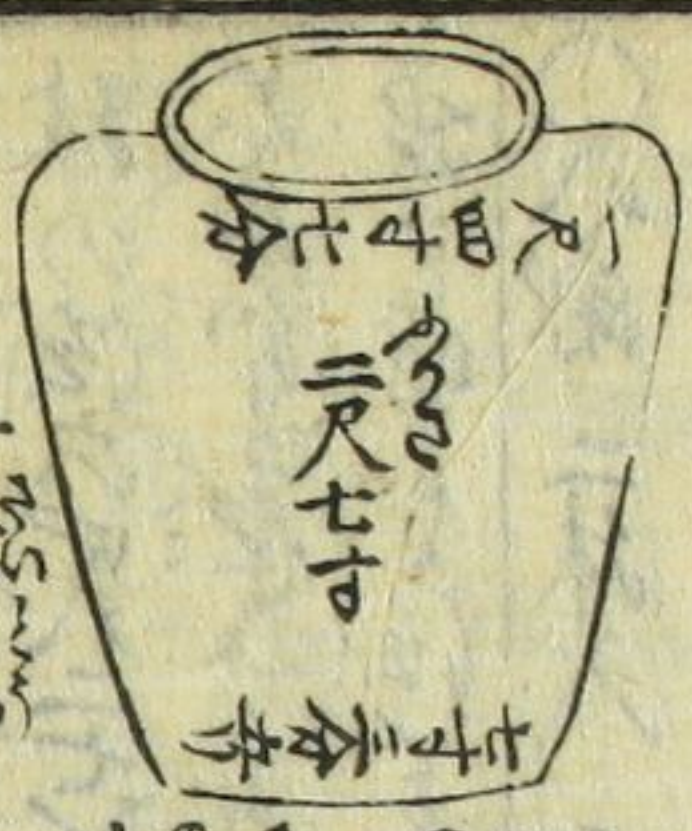 一尺四寸七分
ふかさ
二尺七寸
七寸三分五リ